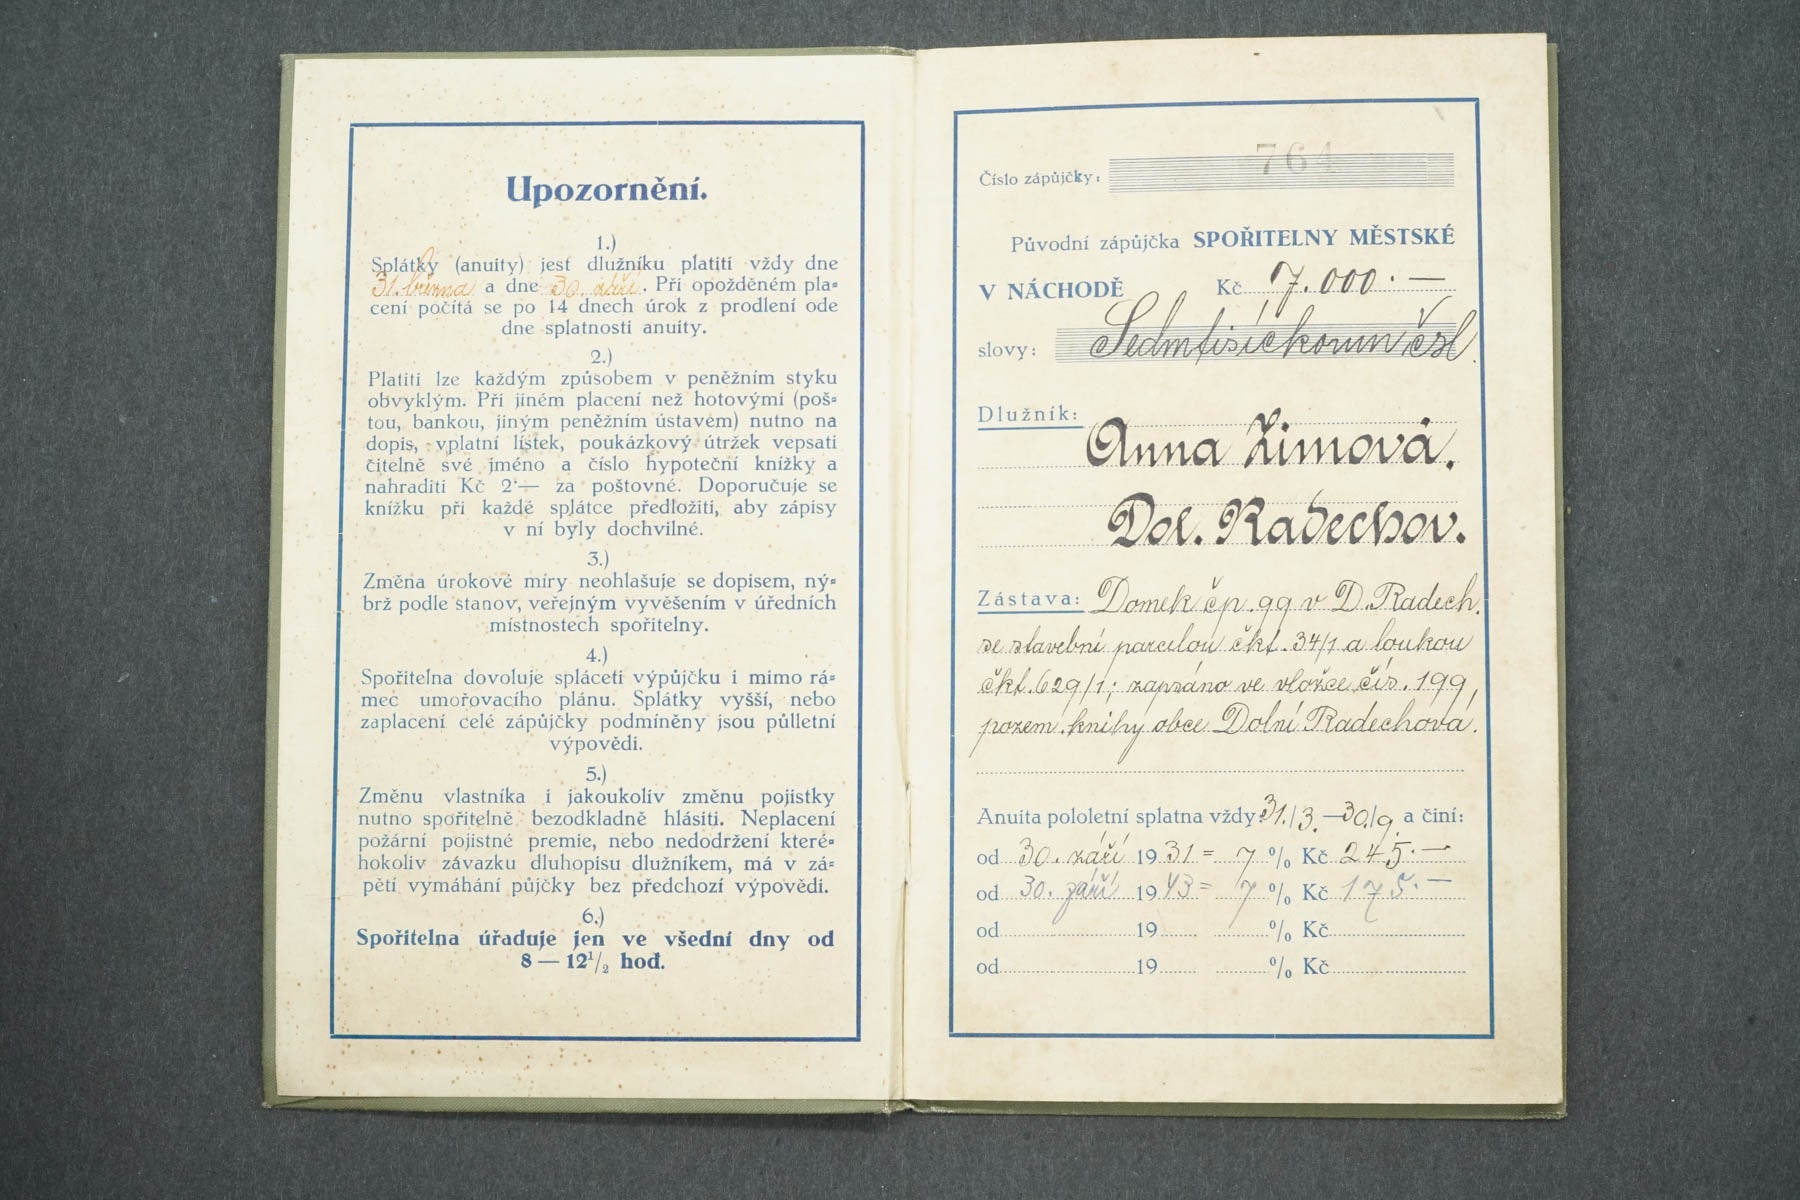 Upozornění.
1.)
Splátky (anuity) jest dlužníku platiti vždy dne
31. března a dne 30. září. Při opožděném pla-
cení počítá se po 14 dnech úrok z prodlení ode
dne splatnosti anuity.
2.)
Platiti lze každým způsobem v peněžním styku
obvyklým. Při jiném placení než hotovými (poš-
tou, bankou, jiným peněžním ústavem) nutno na
dopis, vplatní lístek, poukázkový útržek vepsati
čitelně své jméno a číslo hypoteční knížky a
nahraditi Kč 2·— za poštovné. Doporučuje se
knížku při každé splátce předložiti, aby zápisy
v ní byly dochvilné.
3.)
Změna úrokové míry neohlašuje se dopisem, ný-
brž podle stanov, veřejným vyvěšením v úředních
místnostech spořitelny.
4.)
Spořitelna dovoluje spláceti výpůjčku i mimo rá-
mec umořovacího plánu. Splátky vyšší, nebo
zaplacení celé zápůjčky podmíněny jsou půlletní
výpovědi.
5.)
Změnu vlastníka i jakoukoliv změnu pojistky
nutno spořitelně bezodkladně hlásiti. Neplacení
požární pojistné premie, nebo nedodržení které-
hokoliv závazku dluhopisu dlužníkem, má v zá-
pětí vymáhání půjčky bez předchozí výpovědi.
6.)
Spořitelna úřaduje jen ve všední dny od
8 — 12½ hod.
Číslo zápůjčky: 764
Původní zápůjčka SPOŘITELNY MĚSTSKÉ
V NÁCHODĚ Kč 7.000·—
slovy: Sedmtisíckorun čsl.
Dlužník:
Anna Zimová.
Dol. Radechov.
Zástava: Domek čp. 99 v D. Radech.
se stavební parcelou čkt. 34/1 a loukou
čkt. 629/1; zapsáno ve vložce čís. 199,
pozem. knihy obce Dolní Radechová.
Anuita pololetní splatna vždy: 31./3. — 30./9. a činí:
od 30. září 1931 = 7 % Kč 245·—
od 30. září 1943 = 7 % Kč 175·—
od 19 % Kč
od 19 % Kč